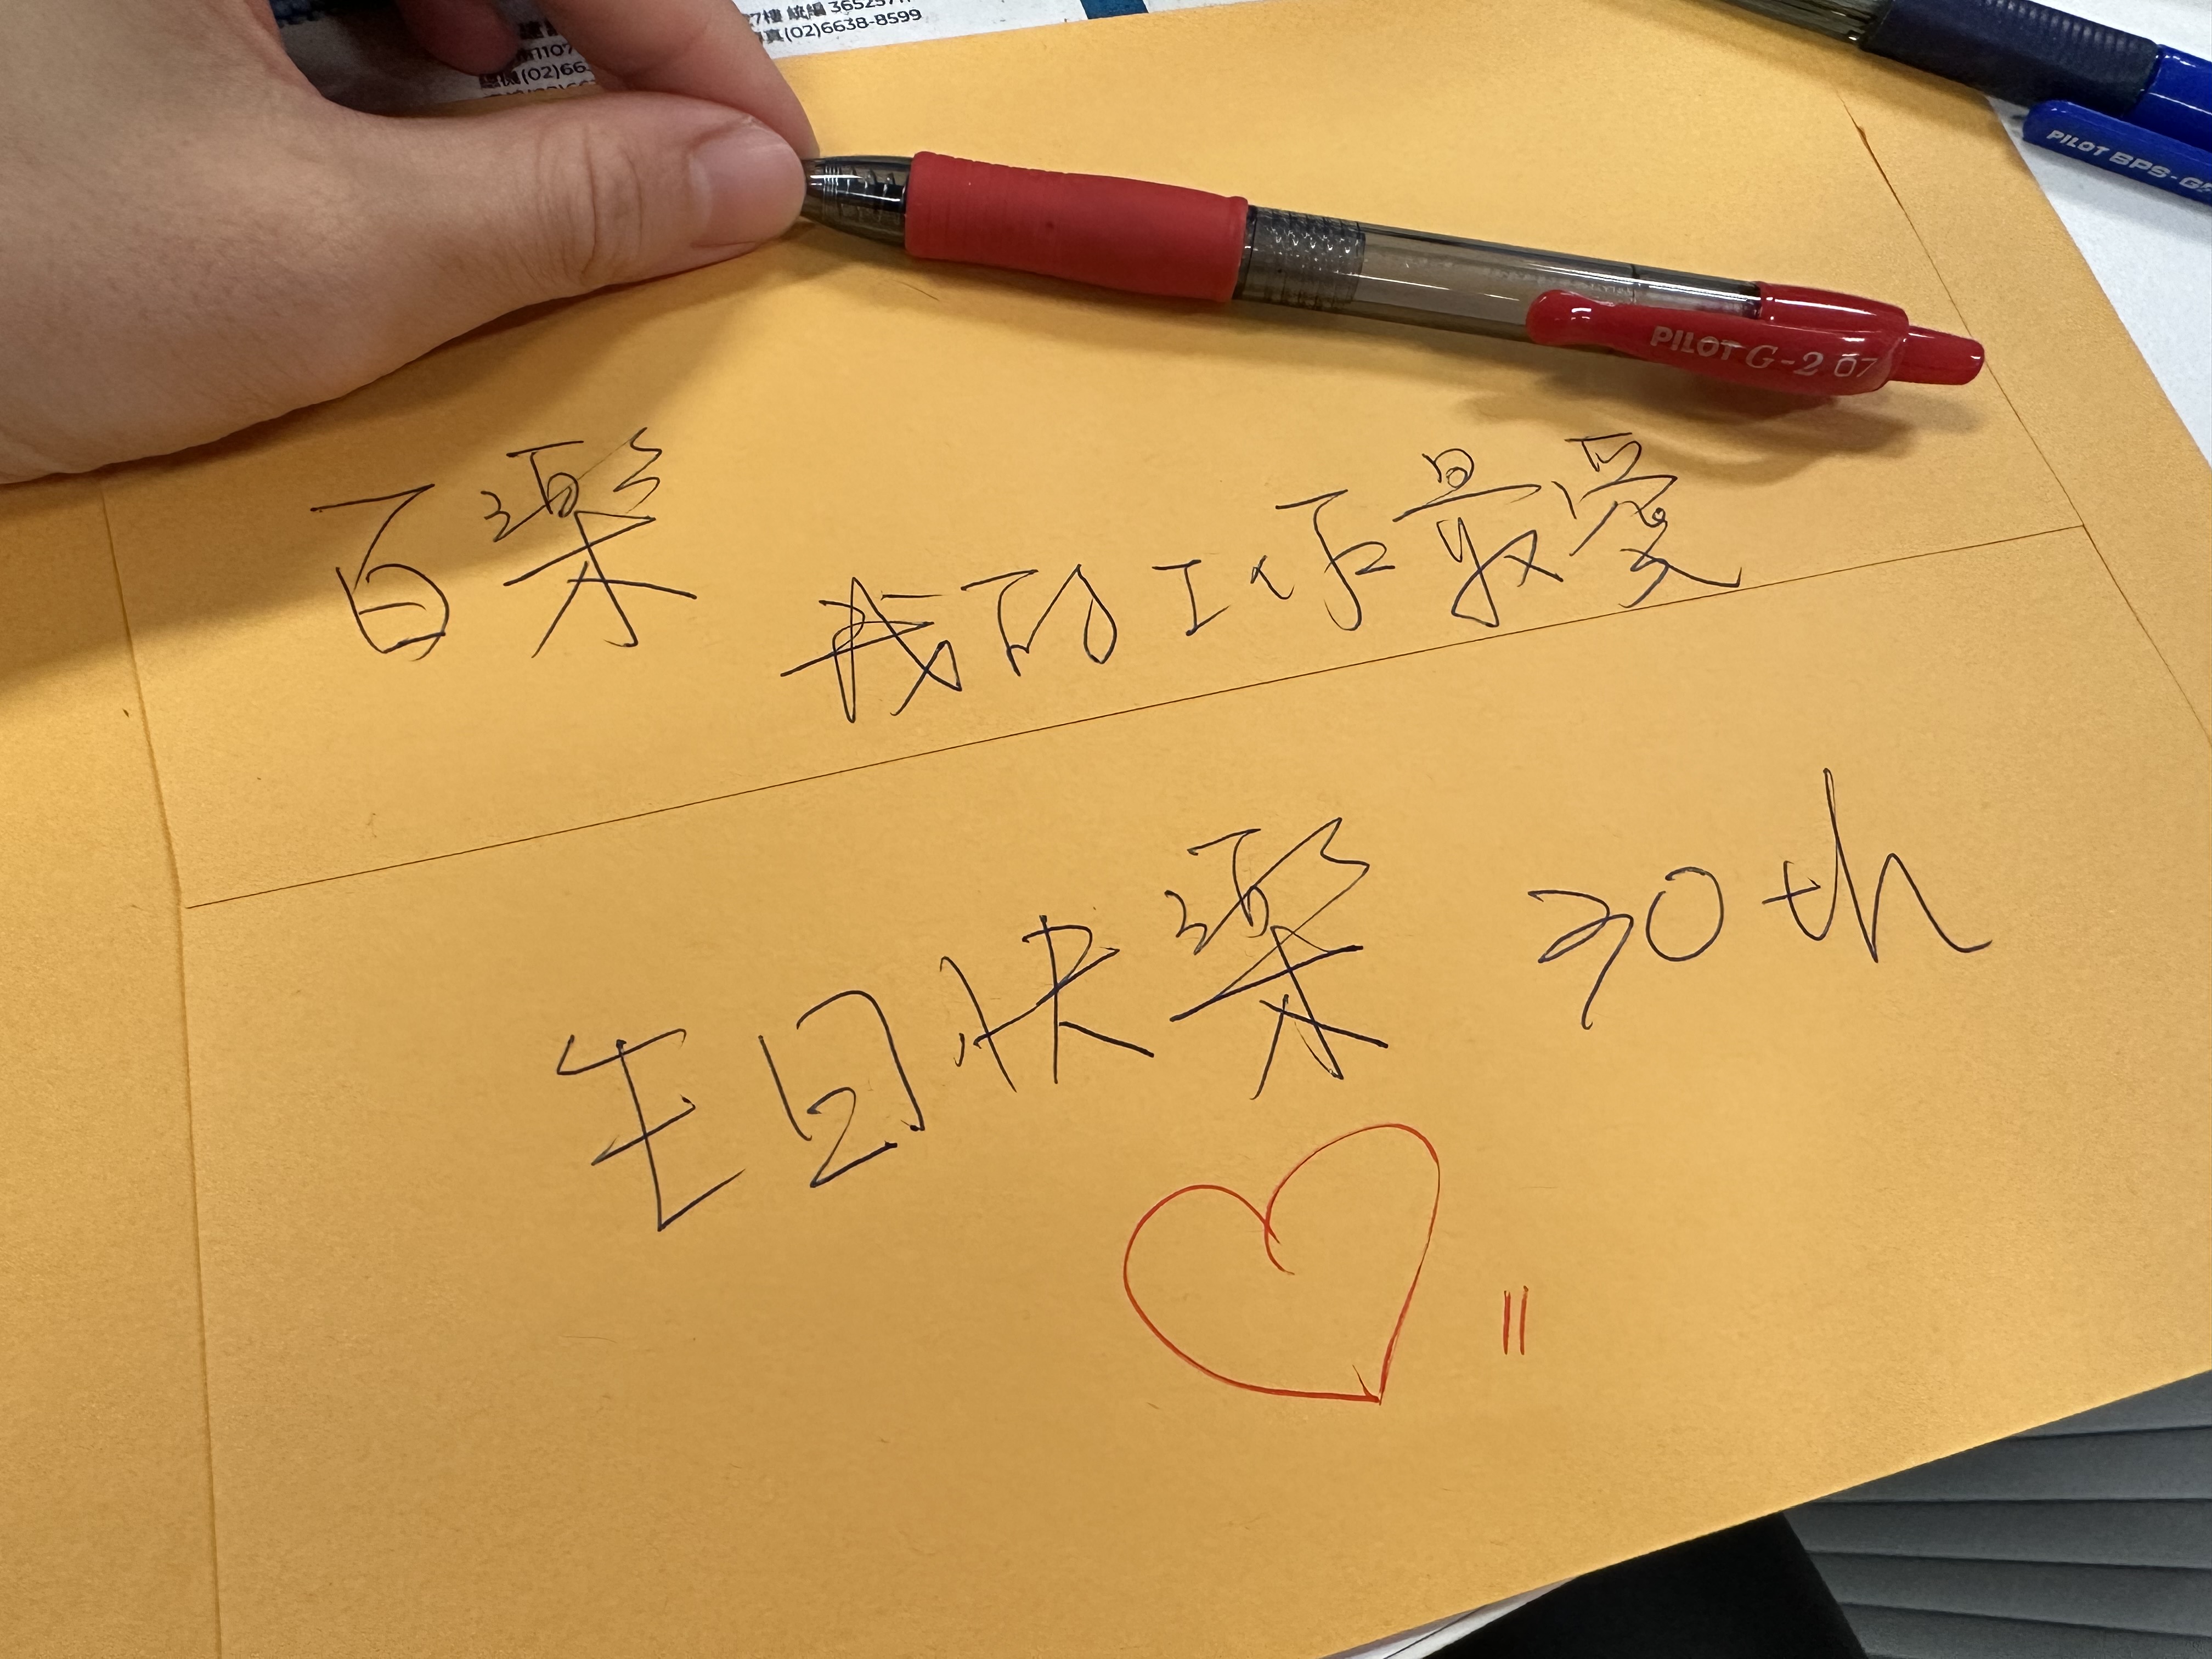 7樓 統編 3652571
真(02)6638-8599
1107
總機(02)66
PILOT BPS-G
PILOT G-2 07
百樂 我的工作最愛
生日快樂 30th